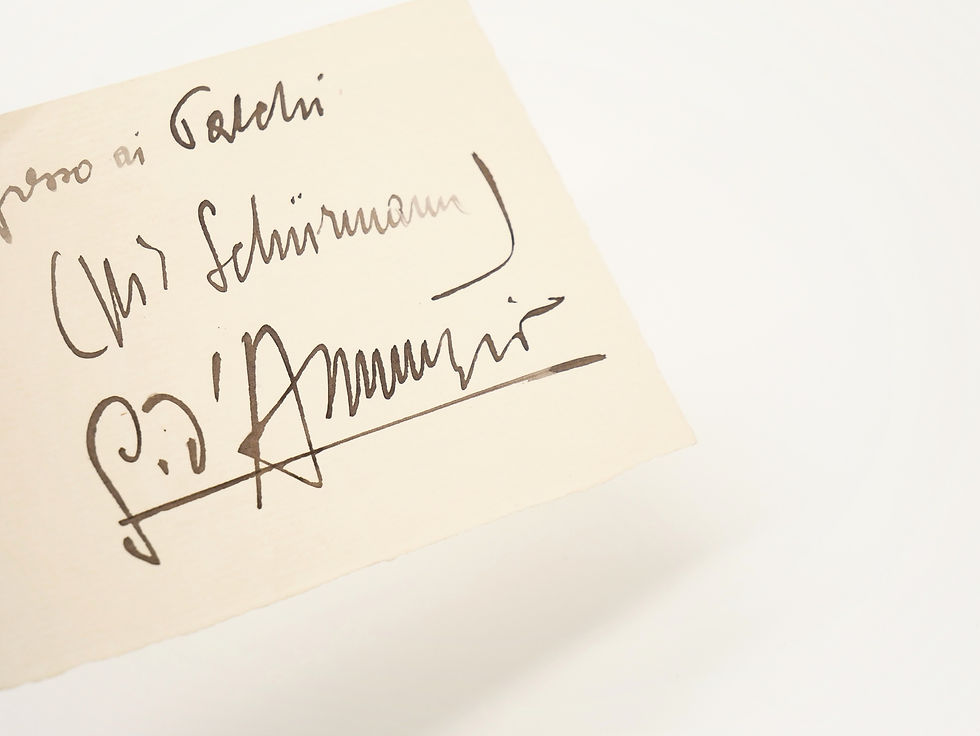 ai Palchi
(Mr Schürmann)
G. d'Annunzio